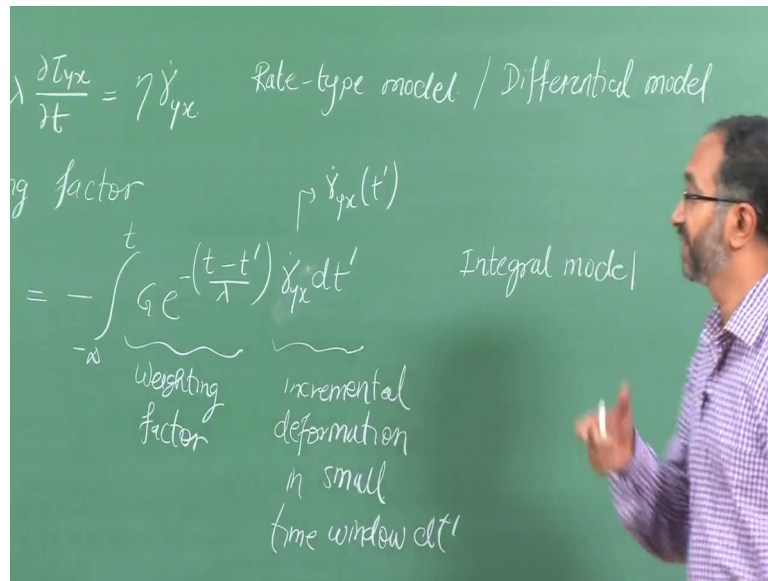 λ ∂τyx/∂t = η γ̇yx   Rate-type model / Differential model
ng factor
γ̇yx(t')
= - ∫_{-∞}^{t} G e^{-((t-t')/λ)} γ̇yx dt'   Integral model
Weighting factor
incremental deformation in small time window dt'